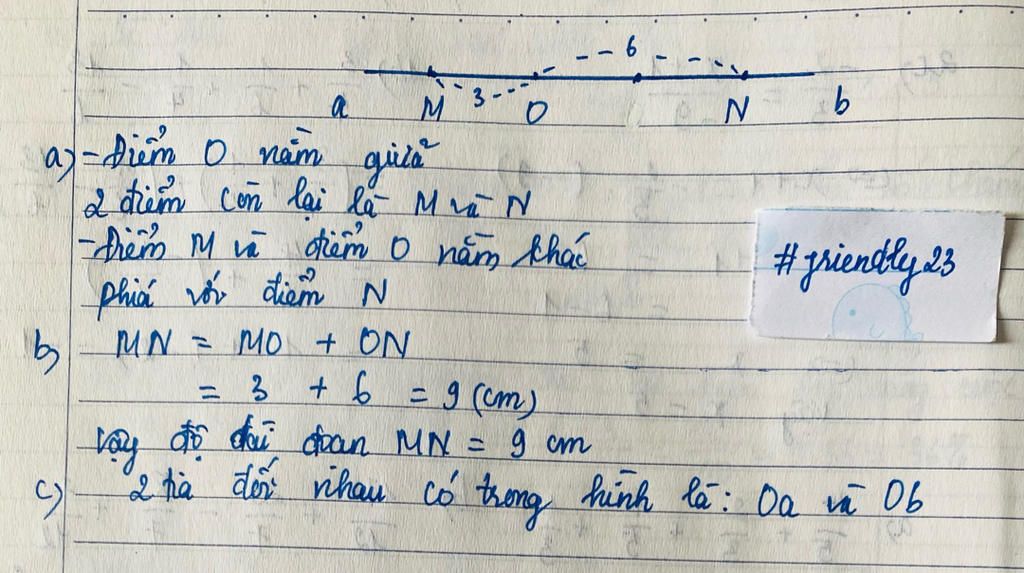 6
3
a M O N b
a) - Điểm O nằm giữa
2 điểm còn lại là M và N
- Điểm M và điểm O nằm khác
phía với điểm N
#friendly23
b) MN = MO + ON
= 3 + 6 = 9 (cm)
Vậy độ dài đoạn MN = 9 cm
c) 2 tia đối nhau có trong hình là: Oa và Ob